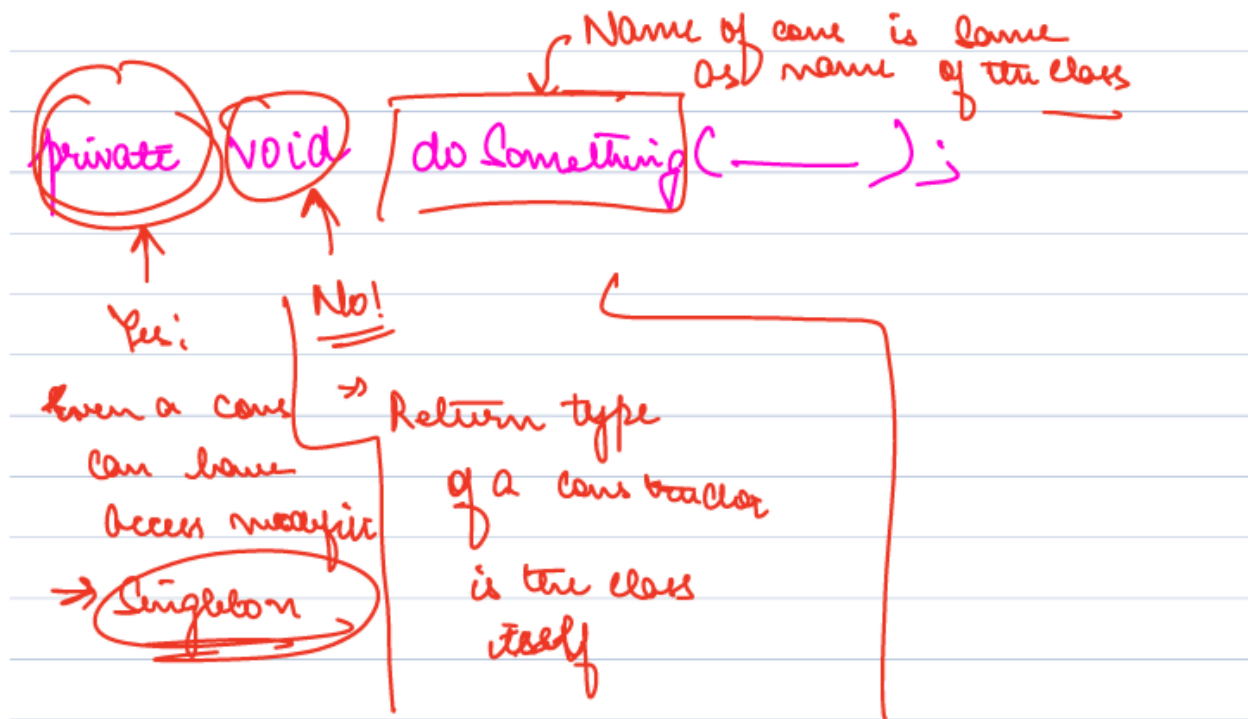 Name of cons is same
as name of the class
private void doSomething( ——— );
Yes:
Even a cons
can have
access modifier
→ Singleton
No!
→ Return type
of a constructor
is the class
itself